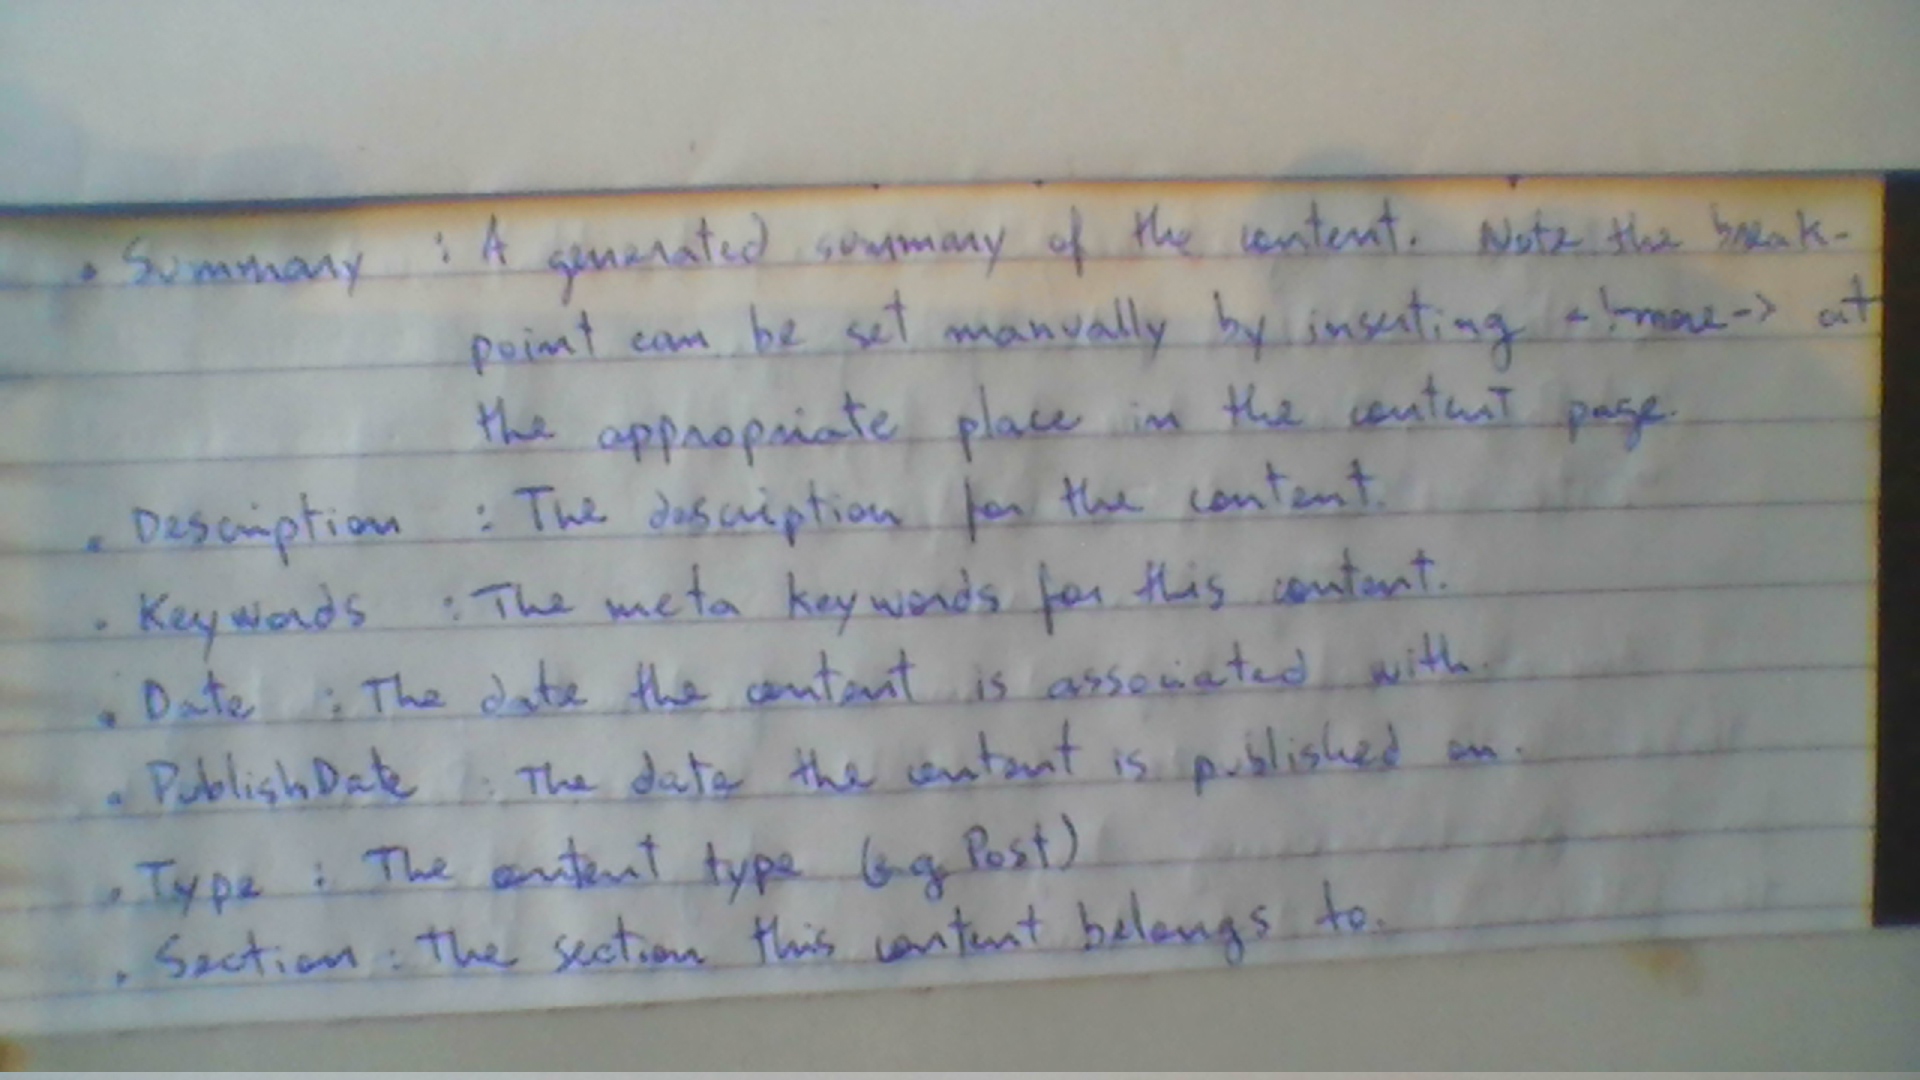 • Summary : A generated summary of the content. Note the break-
point can be set manually by inserting <!-more-> at
the appropriate place in the content page.
• Description : The description for the content.
• Keywords : The meta keywords for this content.
• Date : The date the content is associated with.
• PublishDate : The date the content is published on.
• Type : The content type (eg Post)
• Section : The section this content belongs to.